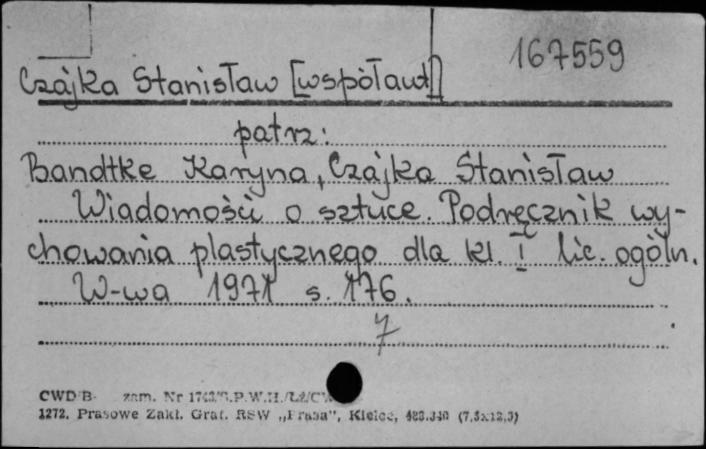 167559
Czajka Stanisław [współaut]
patrz:
Bandtke Karyna, Czajka Stanisław
Wiadomości o sztuce. Podręcznik wy-
chowania plastycznego dla kl. I lic. ogóln.
W-wa 1971 s. 176.
7
CWD/B- zam. Nr
1272. Prasowe Zakł. Graf. RSW „Prasa", Kielce,